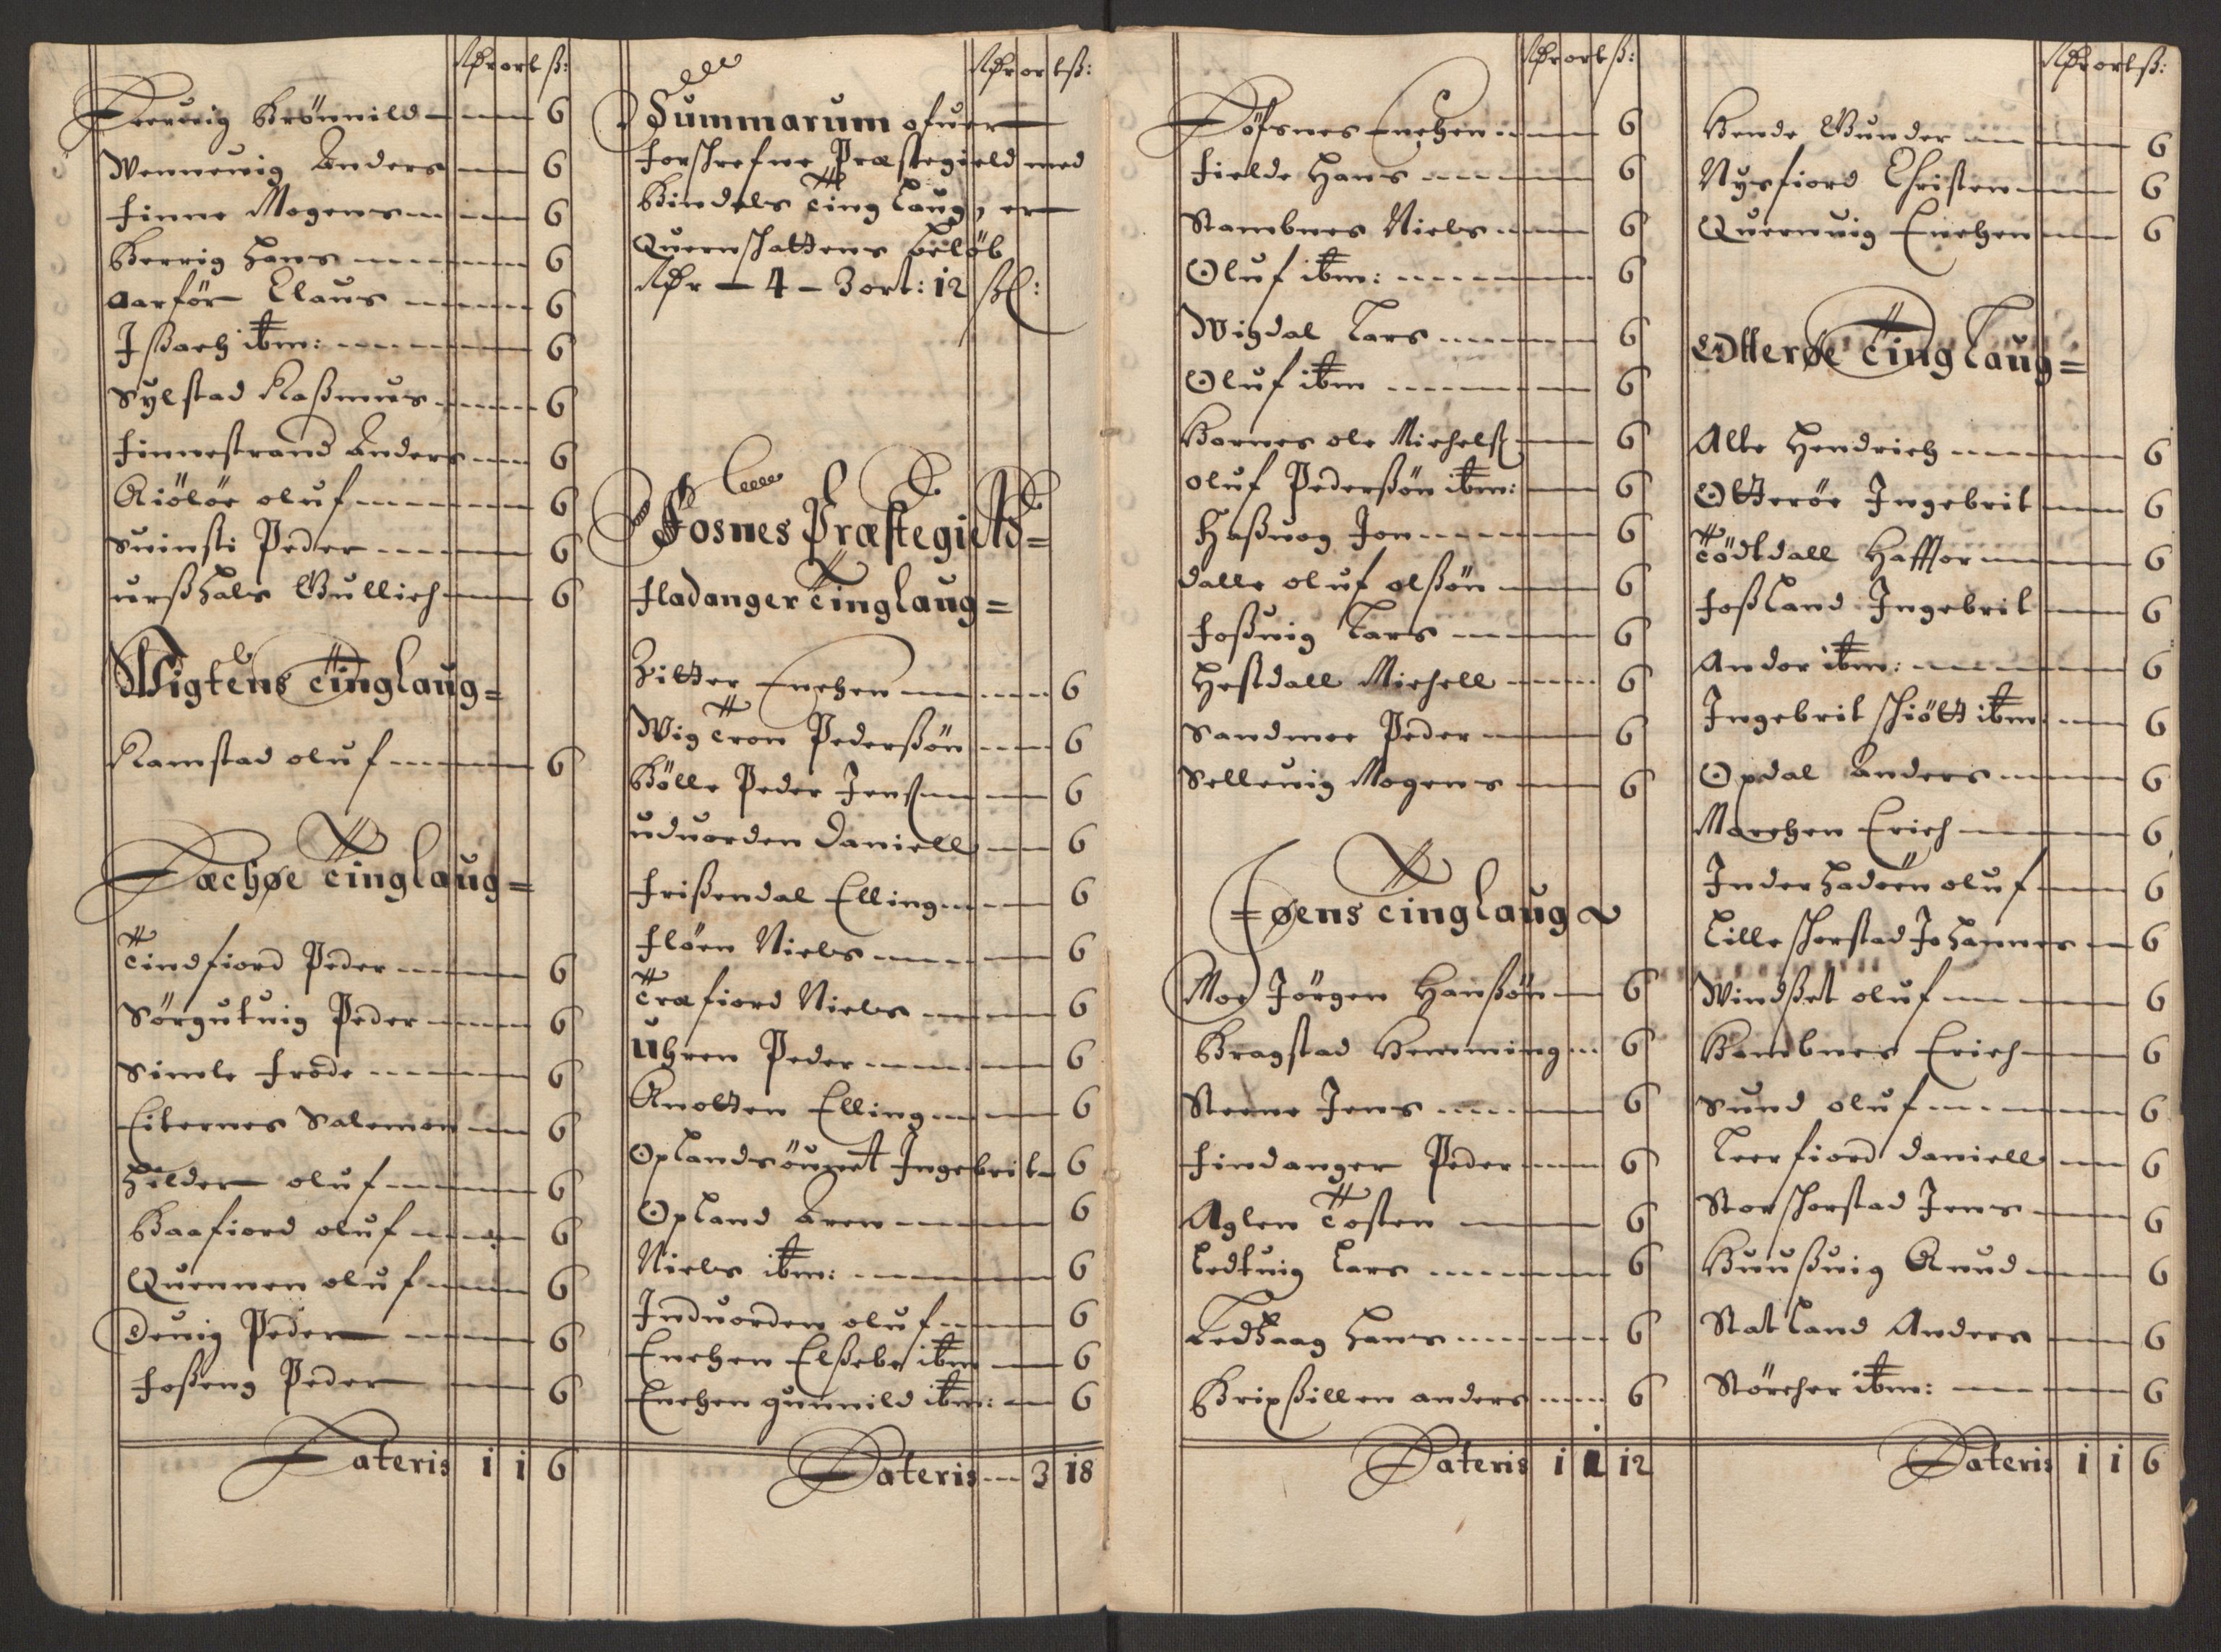 Rdr ort ß:
Leervig Brönnild 6
Wennevig Anders 6
Finne Mogens 6
Berrig Hans 6
Aarför Claus 6
Ißach ibm: 6
Sylstad Raßmus 6
Finnestrand Anders 6
Kiölöe oluf 6
Svinsti Peder 6
urßhals Gullich 6
Wigtens Tinglaug =
Ramstad oluf 6
Læchøe Tinglaug =
Tindfiord Peder 6
Sörgutvig Peder 6
Simle Frode 6
Eiternes Salemon 6
Helder oluf 6
Kaafiord oluf 6
Quennen oluf 6
Devig Peder 6
Foßeng Peder 6
Lateris 1 1 6
Rdr ort ß:
Summarum ofuer
forschrefne Præstegield med
Bindals Ting Laug, er
Quernschattens beløb
Rdr — 4 — 3 ort: 12 ßl:
Fosnes Præstegield =
Fladanger Tinglaug =
Zitter Enchen 6
Wig Tron Pederßön 6
Bölle Peder Jenß 6
uduorden Daniell 6
Frißendal Elling 6
Flöen Niels 6
Træfiord Niels 6
Uhren Peder 6
Knotten Elling 6
Oplandsöuzet Ingebrit 6
Opland Aren 6
Niels ibm: 6
Induorden oluf 6
Enchen Elßebe ibm 6
Enchen gunnild ibm: 6
Lateris 3 18
Rdr ort ß:
Löfsnes Enchen 6
Fielde Hans 6
Stambnes Niels 6
Oluf ibm: 6
Wigdal Lars 6
Oluf ibm 6
Bornes ole Michelß 6
oluf Pederßön ibm: 6
Haßvog Jon 6
Dalle oluf olßön 6
Foßvig Lars 6
Hestdall Michell 6
Sandmoe Peder 6
Sellevig Mogens 6
Føens Tinglaug
Moe Jörgen Hanßön 6
Bragstad Hemming 6
Steene Jens 6
Findanger Peder 6
Aglen Tosten 6
Ledtvig Lars 6
Ledhaag Hans 6
Bripßillen anders 6
Lateris 1 1 12
Rdr ort ß:
Bende Gunder 6
Nysfiord Christen 6
Quernvig Enchen 6
Otterøe Tinglaug =
Alte Hendrich 6
Otterøe Ingebrit 6
Tödtdall Haffor 6
Foßland Ingebrit 6
Andor ibm: 6
Ingebrit schiött ibm 6
Opdal Anders 6
Morchen Erich 6
Inderhadöen oluf 6
Lille schorstad Johannes 6
Windßet oluf 6
Kambnes Erich 6
Sund oluf 6
Leerfiord Daniell 6
Stor schorstad Jens 6
Buußvig Knud 6
Statland Anders 6
Störcher ibm: 6
Lateris 1 1 6